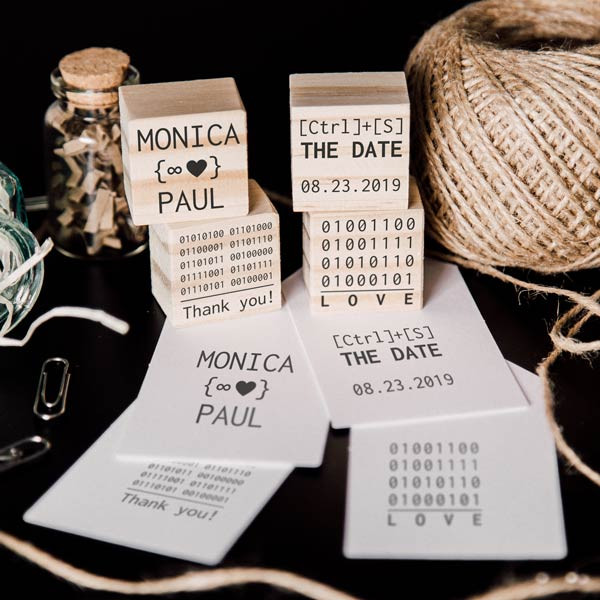 MONICA
{∞♥}
PAUL
[Ctrl]+[S]
THE DATE
08.23.2019
01010100 01101000
01100001 01101110
01101011 00100000
01111001 01101111
01110101 00100001
Thank you!
01001100
01001111
01010110
01000101
LOVE
MONICA
{∞♥}
PAUL
[Ctrl]+[S]
THE DATE
08.23.2019
01101011 00100000
01111001 01101111
01110101 00100001
Thank you!
01001100
01001111
01010110
01000101
LOVE